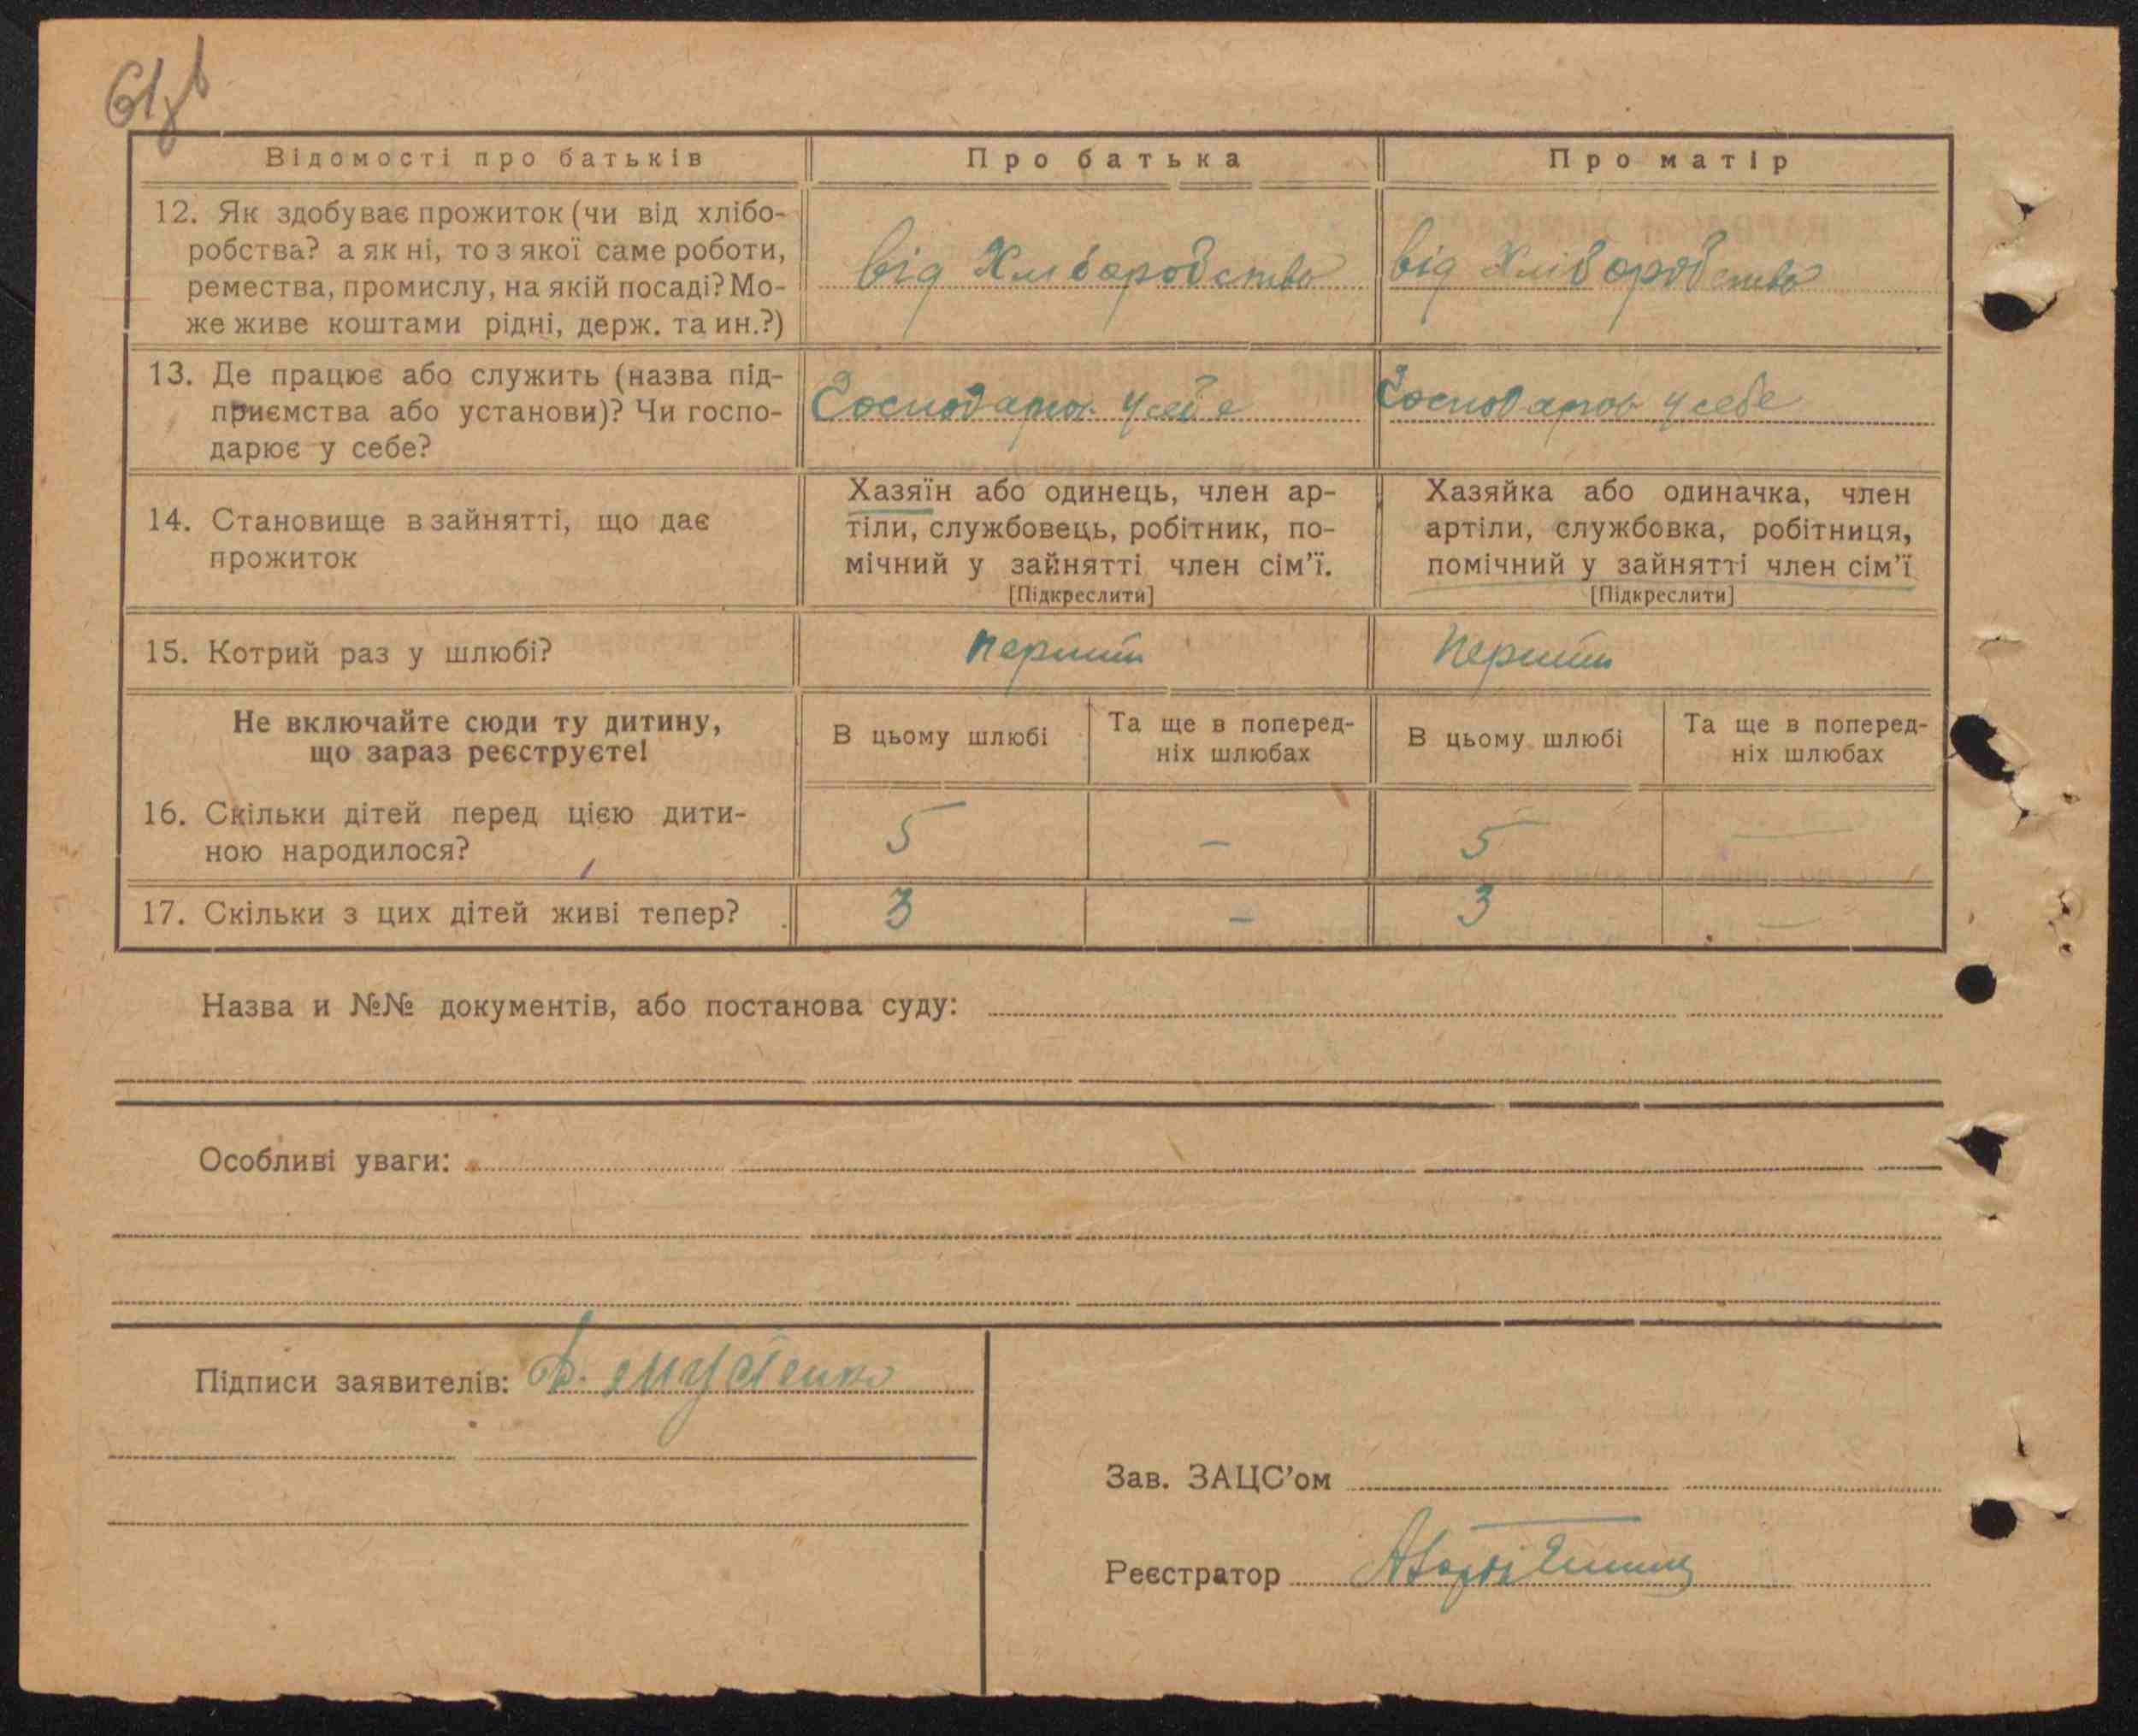 61зв
Відомості про батьків
Про батька
Про матір
12. Як здобуває прожиток (чи від хлібо-
робства? а як ні, то з якої саме роботи,
ремества, промислу, на якій посаді? Мо-
же живе коштами рідні, держ. та ин.?)
від Хліборобства
від Хліборобства
13. Де працює або служить (назва під-
приємства або установи)? Чи госпо-
дарює у себе?
Господарює у себе
Господарює у себе
14. Становище в зайнятті, що дає
прожиток
Хазяїн або одинець, член ар-
тіли, службовець, робітник, по-
мічний у зайнятті член сім'ї.
[Підкреслити]
Хазяйка або одиначка, член
артіли, службовка, робітниця,
помічний у зайнятті член сім'ї
[Підкреслити]
15. Котрий раз у шлюбі?
перший
перший
Не включайте сюди ту дитину,
що зараз реєструєте!
В цьому шлюбі
Та ще в поперед-
ніх шлюбах
В цьому шлюбі
Та ще в поперед-
ніх шлюбах
16. Скільки дітей перед цією дити-
ною народилося?
5 – 5 —
17. Скільки з цих дітей живі тепер?
3 – 3 —
Назва и №№ документів, або постанова суду:
Особливі уваги:
Підписи заявителів:
Зав. ЗАЦС'ом
Реєстратор